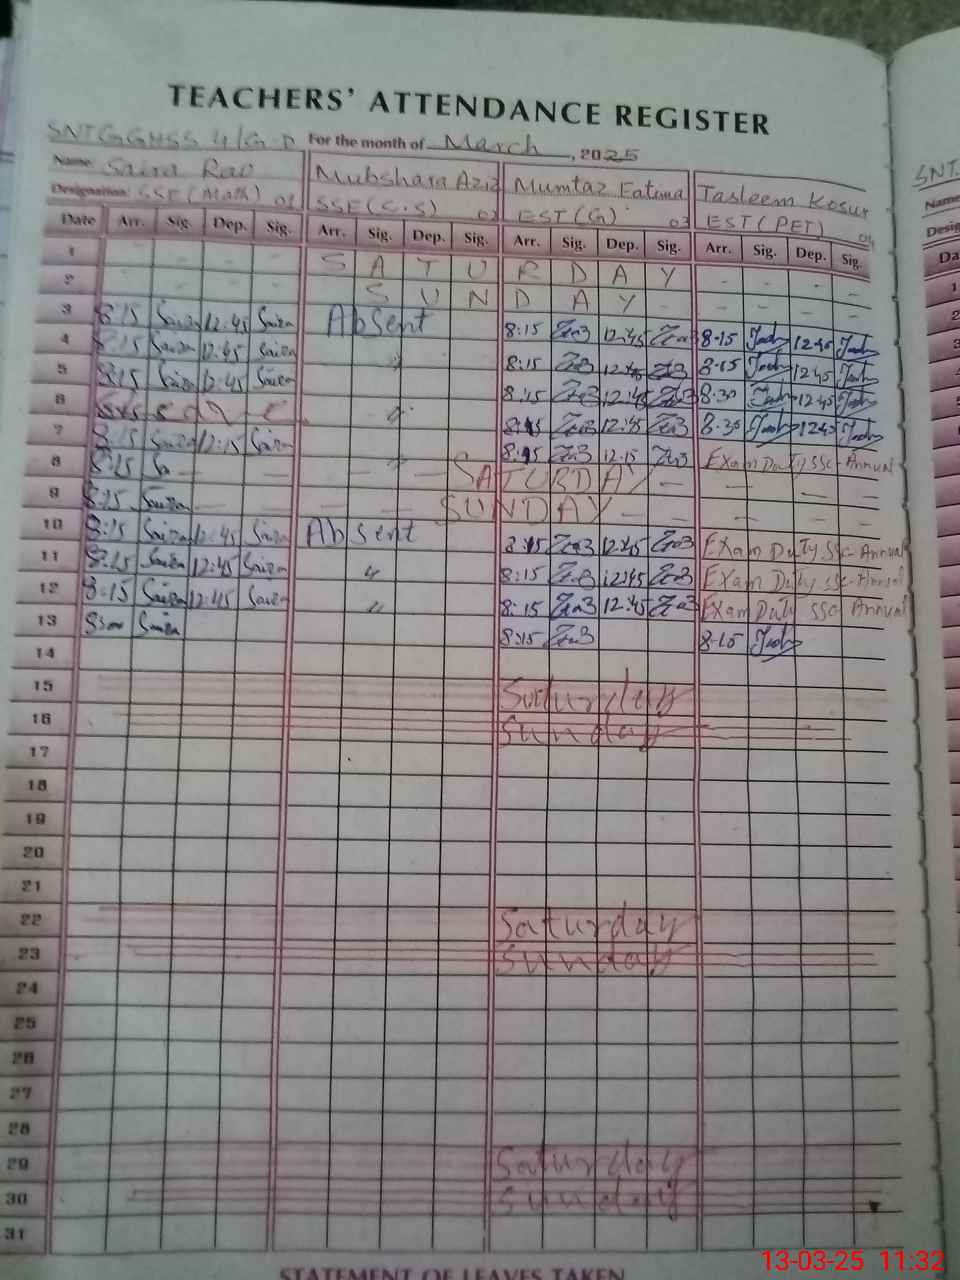 TEACHERS' ATTENDANCE REGISTER
SNTGGHSS 4/G.D For the month of March, 2025
Name: Saira Rao Mubshara Aziz Mumtaz Fatima Tasleem Kosur
Designation: SSE (Math) 01 SSE (C.S) 02 EST (G) 03 EST (PET) 04
Date Arr. Sig. Dep. Sig. Arr. Sig. Dep. Sig. Arr. Sig. Dep. Sig. Arr. Sig. Dep. Sig.
1 - - - - S A T U R D A Y - - - -
2 - - - - S U N D A Y - - - - -
3 8:15 Saira 12:45 Saira Absent 8:15 12:45 8-15 12:45
4 8:15 Saira 12:45 Saira 〃 8:15 12:45 8-15 12:45
5 8:15 Saira 12:45 Saira 8:15 12:45 8-30 12:45
6 〃 8:15 12:45 8-30 12:45
7 8:15 Saira 12:15 Saira 〃 8:15 12:15 Exam Duty SSC-Annual
8 8:15 Sa — — — SATURDAY — — — —
9 8:15 Saira — — SUNDAY — — — —
10 8:15 Saira 12:45 Saira Absent 8:15 12:45 Exam Duty SSC-Annual
11 8:15 Saira 12:45 Saira 〃 8:15 12:45 Exam Duty SSC-Annual
12 8:15 Saira 12:45 Saira 〃 8:15 12:45 Exam Duty SSC Annual
13 8:00 Saira 8:15 8-15
14
15 Saturday
16 Sunday
17
18
19
20
21
22 Saturday
23 Sunday
24
25
26
27
28
29 Saturday
30 Sunday
31
STATEMENT OF LEAVES TAKEN
SNT
Name
Desig
Da
1
2
3
13-03-25 11:32